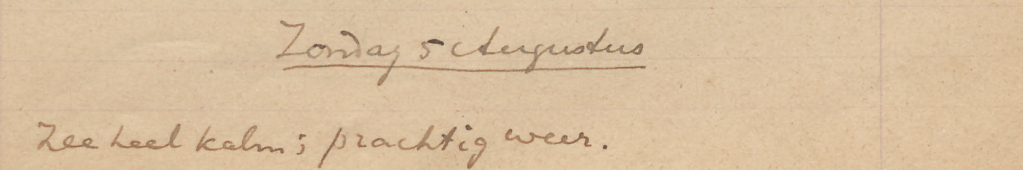 Zondag 5 Augustus
Zee heel kalm; prachtig weer.